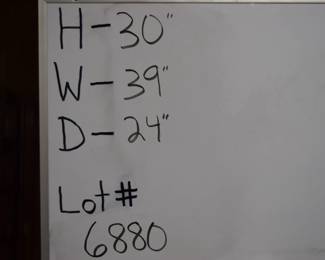 H-30"
W-39"
D-24"
Lot#
6880